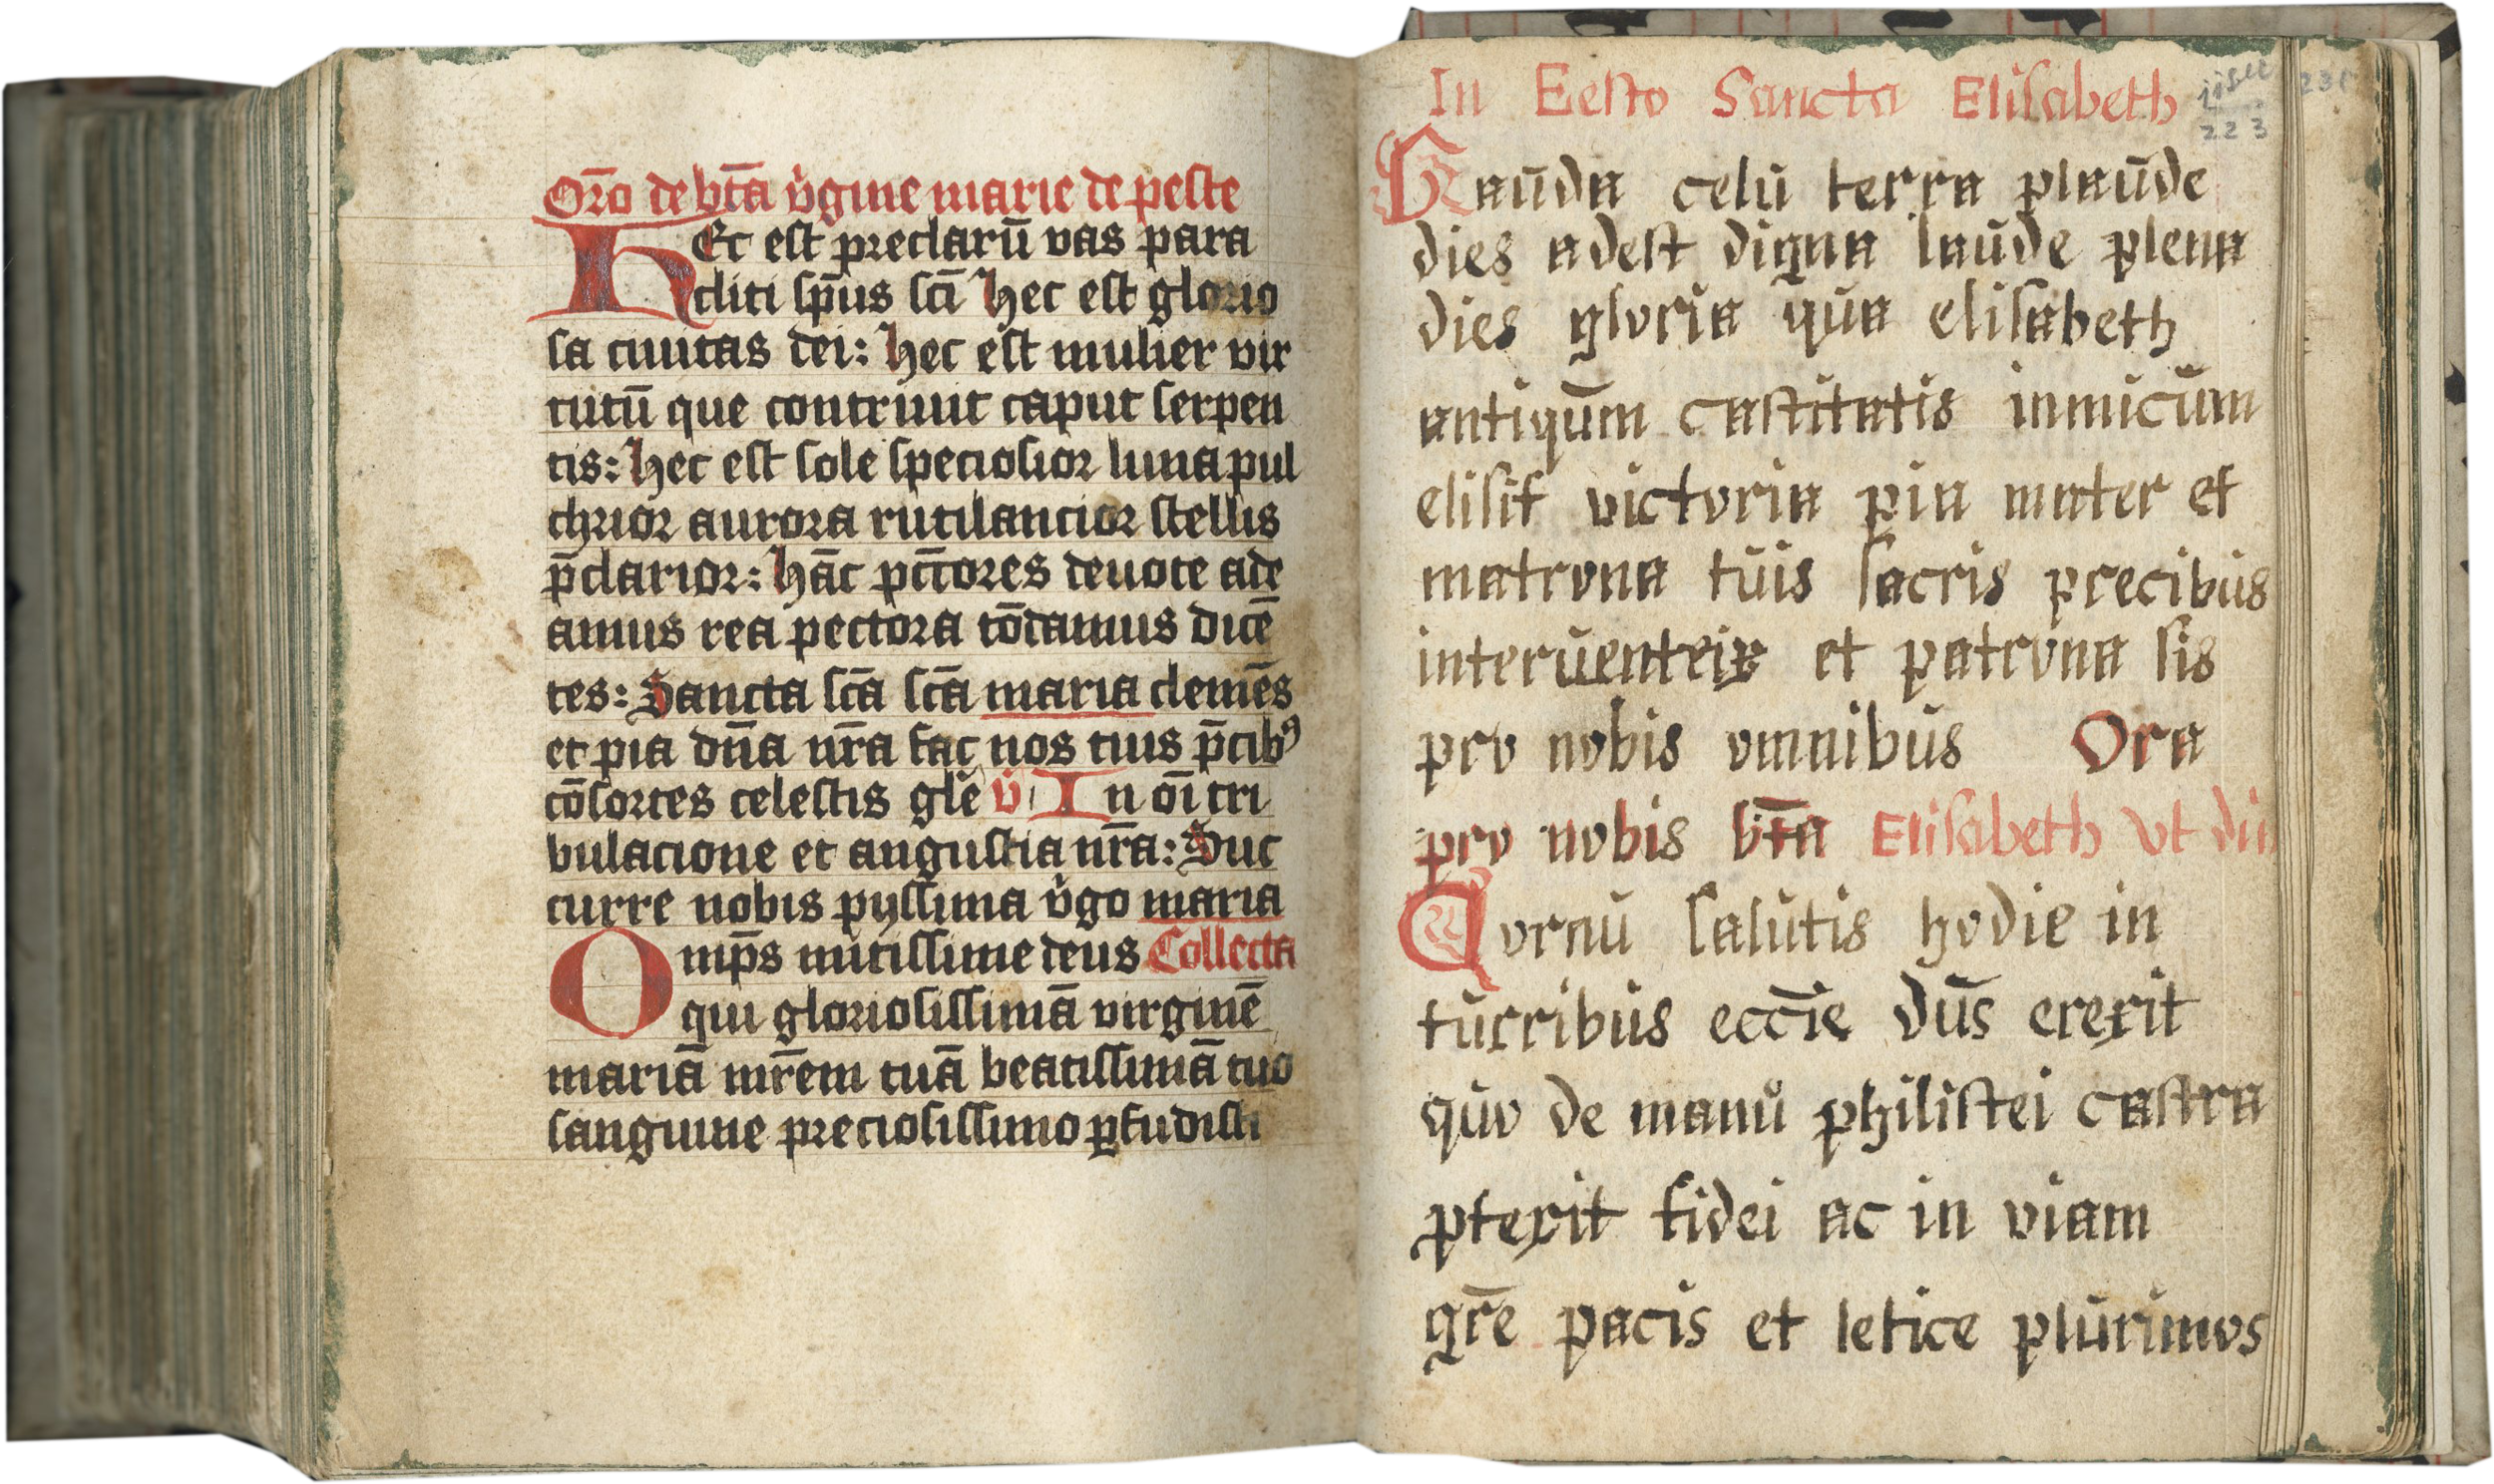 Or̄o de bt̄a v̄gine marie de peste
Hec est preclarū vas para
cliti sp̄us sc̄i Hec est glorio
sa ciuitas dei: Hec est mulier vir
tutū que contriuit caput serpen
tis: Hec est sole speciosior luna pul
chrior aurora rutilancior stellis
p̄clarior: Hāc pcc̄tores deuote ade
amus rea pectora tōdamus dicē
tes: Sancta sc̄a sc̄a maria clemēs
et pia dn̄a nr̄a fac nos tuis p̄cibꝰ
cōsortes celestis gl̄e v̄ In oı̄ tri
bulacione et angustia nr̄a: Suc
curre nobis pyssima v̄go maria
Omp̄s mitissime deus Collecta
qui gloriosissimā virginē
mariā mr̄em tuā beatissimā tuo
sanguine preciosissimo ꝑfudisti
In Eesto Sancta Elisabeth
223 231
Gaūda celū terra plaūde
dies adest digna laūde plena
dies gloria qūa elisabeth
antiqūm castitatis inmicūm
elisit victoria pia mater et
matrona tūis sacris precibūs
interūenteix et patrona sis
pro nobis omnibūs Ora
pro nobis bt̄a Elisabeth vt dii
Qornū salūtis hodie in
tūrribūs ecc̄ie dūs erexit
qūo de manů philistei castra
ꝓtexit fidei ac in viam
gr̄e pacis et letice plūrimos